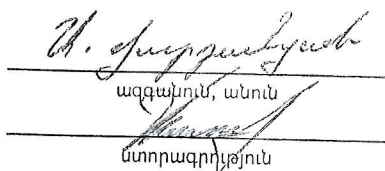 Ա. Վարդանյան
ազգանուն, անուն
ստորագրություն